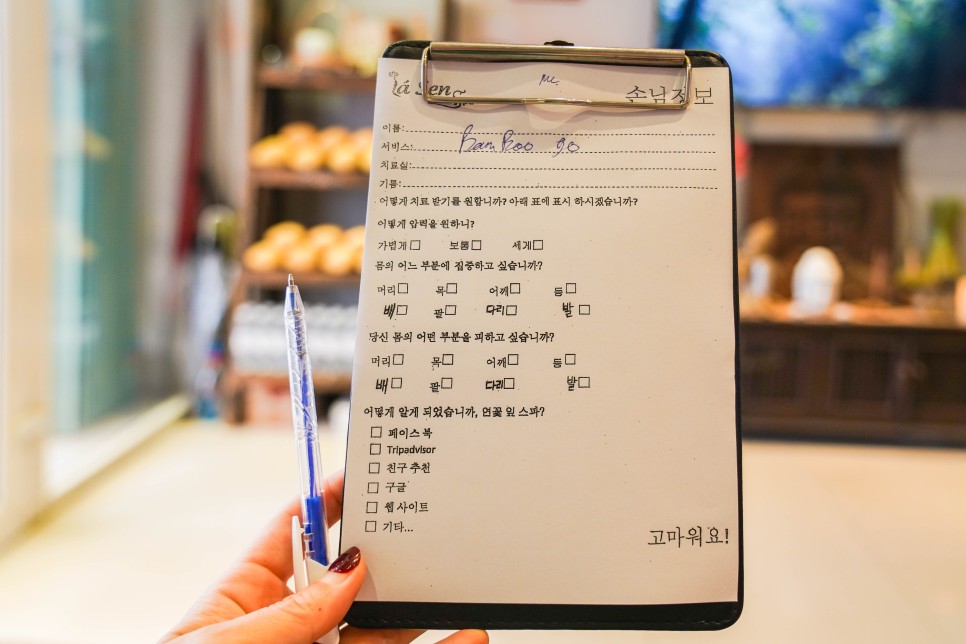 lá Sen
손님정보
이름:
서비스: BamBoo 90
치료실:
기름:
어떻게 치료 받기를 원합니까? 아래 표에 표시 하시겠습니까?
어떻게 압력을 원하니?
가볍게 보통 세게
몸의 어느 부분에 집중하고 싶습니까?
머리 목 어깨 등
배 팔 다리 발
당신 몸의 어떤 부분을 피하고 싶습니까?
머리 목 어깨 등
배 팔 다리 발
어떻게 알게 되었습니까, 연꽃 잎 스파?
페이스 북
Tripadvisor
친구 추천
구글
웹 사이트
기타...
고마워요!